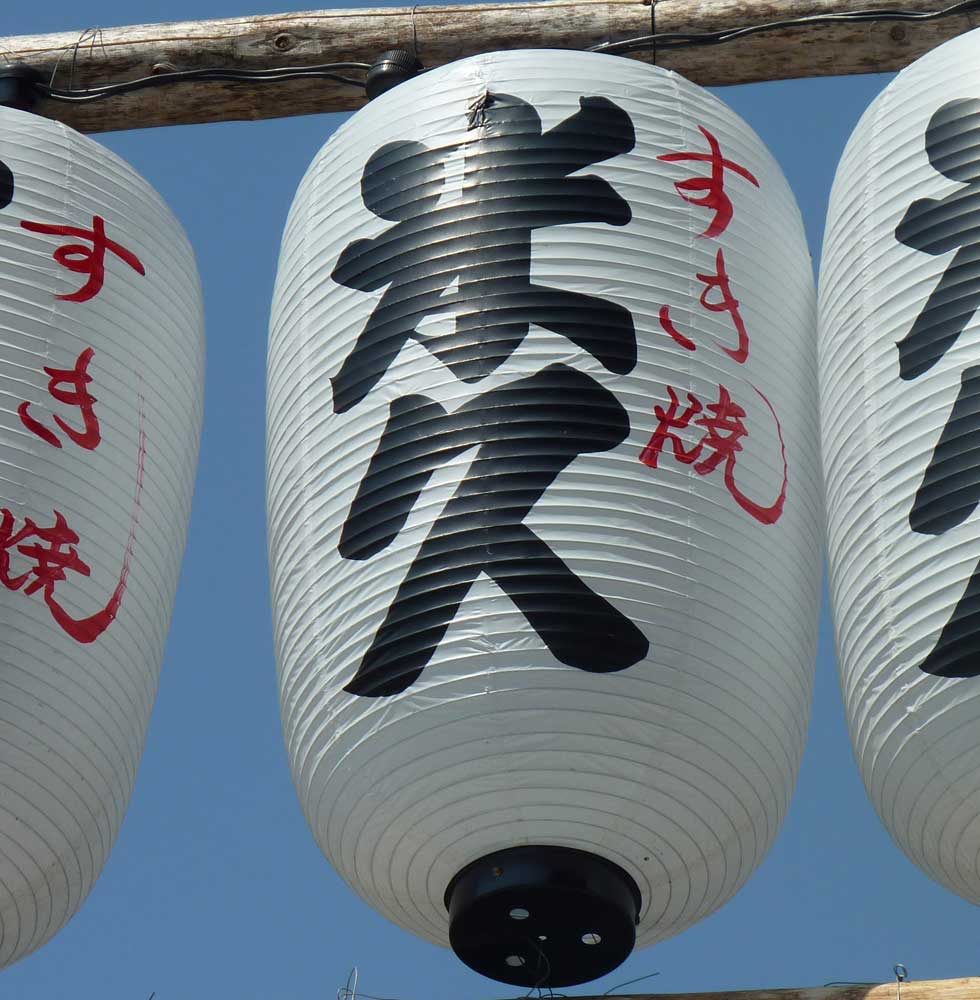 すき焼
米久
すき焼